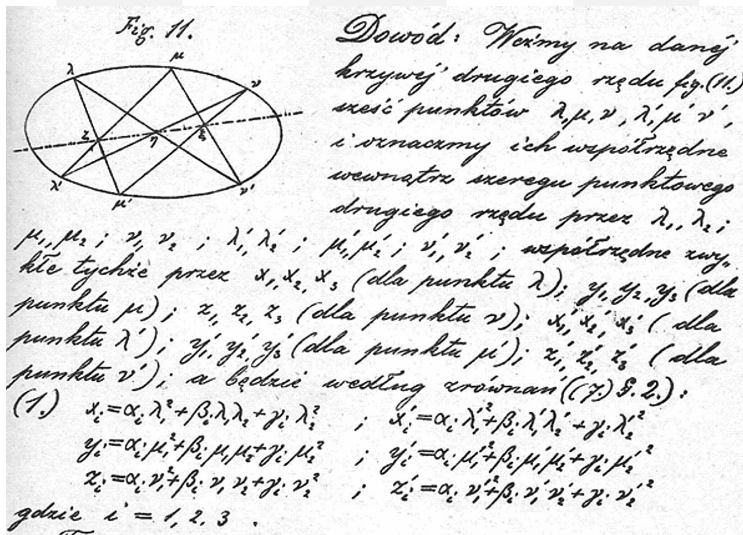 Fig. 11.
λ μ ν
ζ η ξ
λ' μ' ν'
Dowód: Weźmy na danéj
krzywéj drugiego rzędu fig. (11.)
sześć punktów λ, μ, ν, λ', μ' ν',
i oznaczmy ich współrzędne
wewnątrz szeregu punktowego
drugiego rzędu przez λ₁, λ₂;
μ₁, μ₂; ν₁, ν₂; λ₁', λ₂'; μ₁', μ₂'; ν₁', ν₂'; współrzędne zwy„
kłe tychże przez x₁, x₂, x₃ (dla punktu λ); y₁, y₂, y₃ (dla
punktu μ); z₁, z₂, z₃ (dla punktu ν); x₁', x₂', x₃' (dla
punktu λ'); y₁', y₂', y₃' (dla punktu μ'); z₁', z₂', z₃' (dla
punktu ν'); a będzie według zrównań ((7.) §. 2.):
(1.) xᵢ=αᵢ λ₁²+βᵢ λ₁λ₂+γᵢ λ₂² ; xᵢ'=αᵢ λ₁'²+βᵢ λ₁'λ₂'+γᵢ λ₂'²
yᵢ=αᵢ μ₁²+βᵢ μ₁μ₂+γᵢ μ₂² ; yᵢ'=αᵢ μ₁'²+βᵢ μ₁'μ₂'+γᵢ μ₂'²
zᵢ=αᵢ ν₁²+βᵢ ν₁ν₂+γᵢ ν₂² ; zᵢ'=αᵢ ν₁'²+βᵢ ν₁'ν₂'+γᵢ ν₂'²
gdzie i = 1, 2, 3.